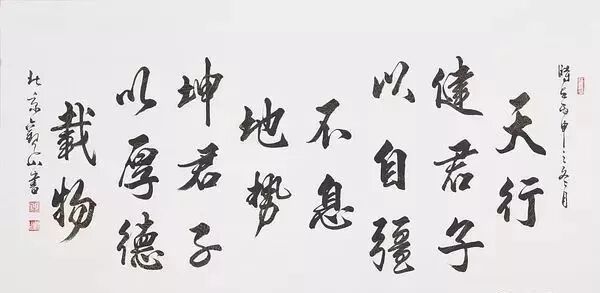 時在丙申之冬月
天行
健君子
以自彊
不息
地勢
坤君子
以厚德
載物
北京觀山書